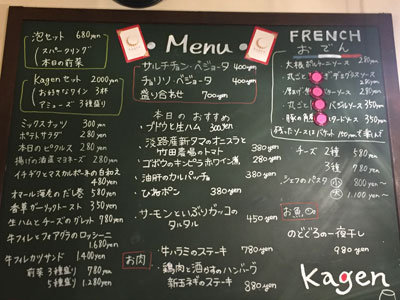 泡セット 680yen
(スパークリング
本日の前菜)
Kagenセット 2000yen
(お好きなワイン 3杯
アミューズ 3種盛り)
ミックスナッツ 300yen
ポテトサラダ 280yen
本日のピクルス 280yen
280yen
イチヂクとマスカルポーネの白和え
480yen
オマール海老のだし巻 580yen
香草ガーリックトースト 350yen
生ハムとチーズのグレナ 980yen
牛フィレとフォアグラのロッシーニ
1,680yen
牛フィレカツサンド 1400yen
前菜 3種盛り 780yen
5種盛り 1,280yen
Menu
サルチチョン・ベジョータ 400yen
チョリソ・ベジョータ 400yen
盛り合あせ 700yen
本日のおすすめ
ブドウと生ハム 300yen
淡路産新タマのオニスラと
竹田農場のトマト 380yen
ゴボウのキンピラ赤ワイン煮 280yen
油目のカルパッチョ 380yen
380yen
サーモンといぶりガッコの
タルタル 450yen
お肉
牛ハラミのステーキ 780yen
鶏肉と酒かすのハンバーグ 380yen
新玉ネギのステーキ 580yen
FRENCH
おでん
大根ポルチーニソース 280yen
丸ごと
280yen
厚あげ 280yen
丸ごと バジルソース 350yen
豚の角煮 350yen
チーズ 2種 580yen
3種 780yen
シェフのパスタ 小 800yen〜
大 1,100yen〜
お魚
のどぐろの一夜干し
980yen
Kagen